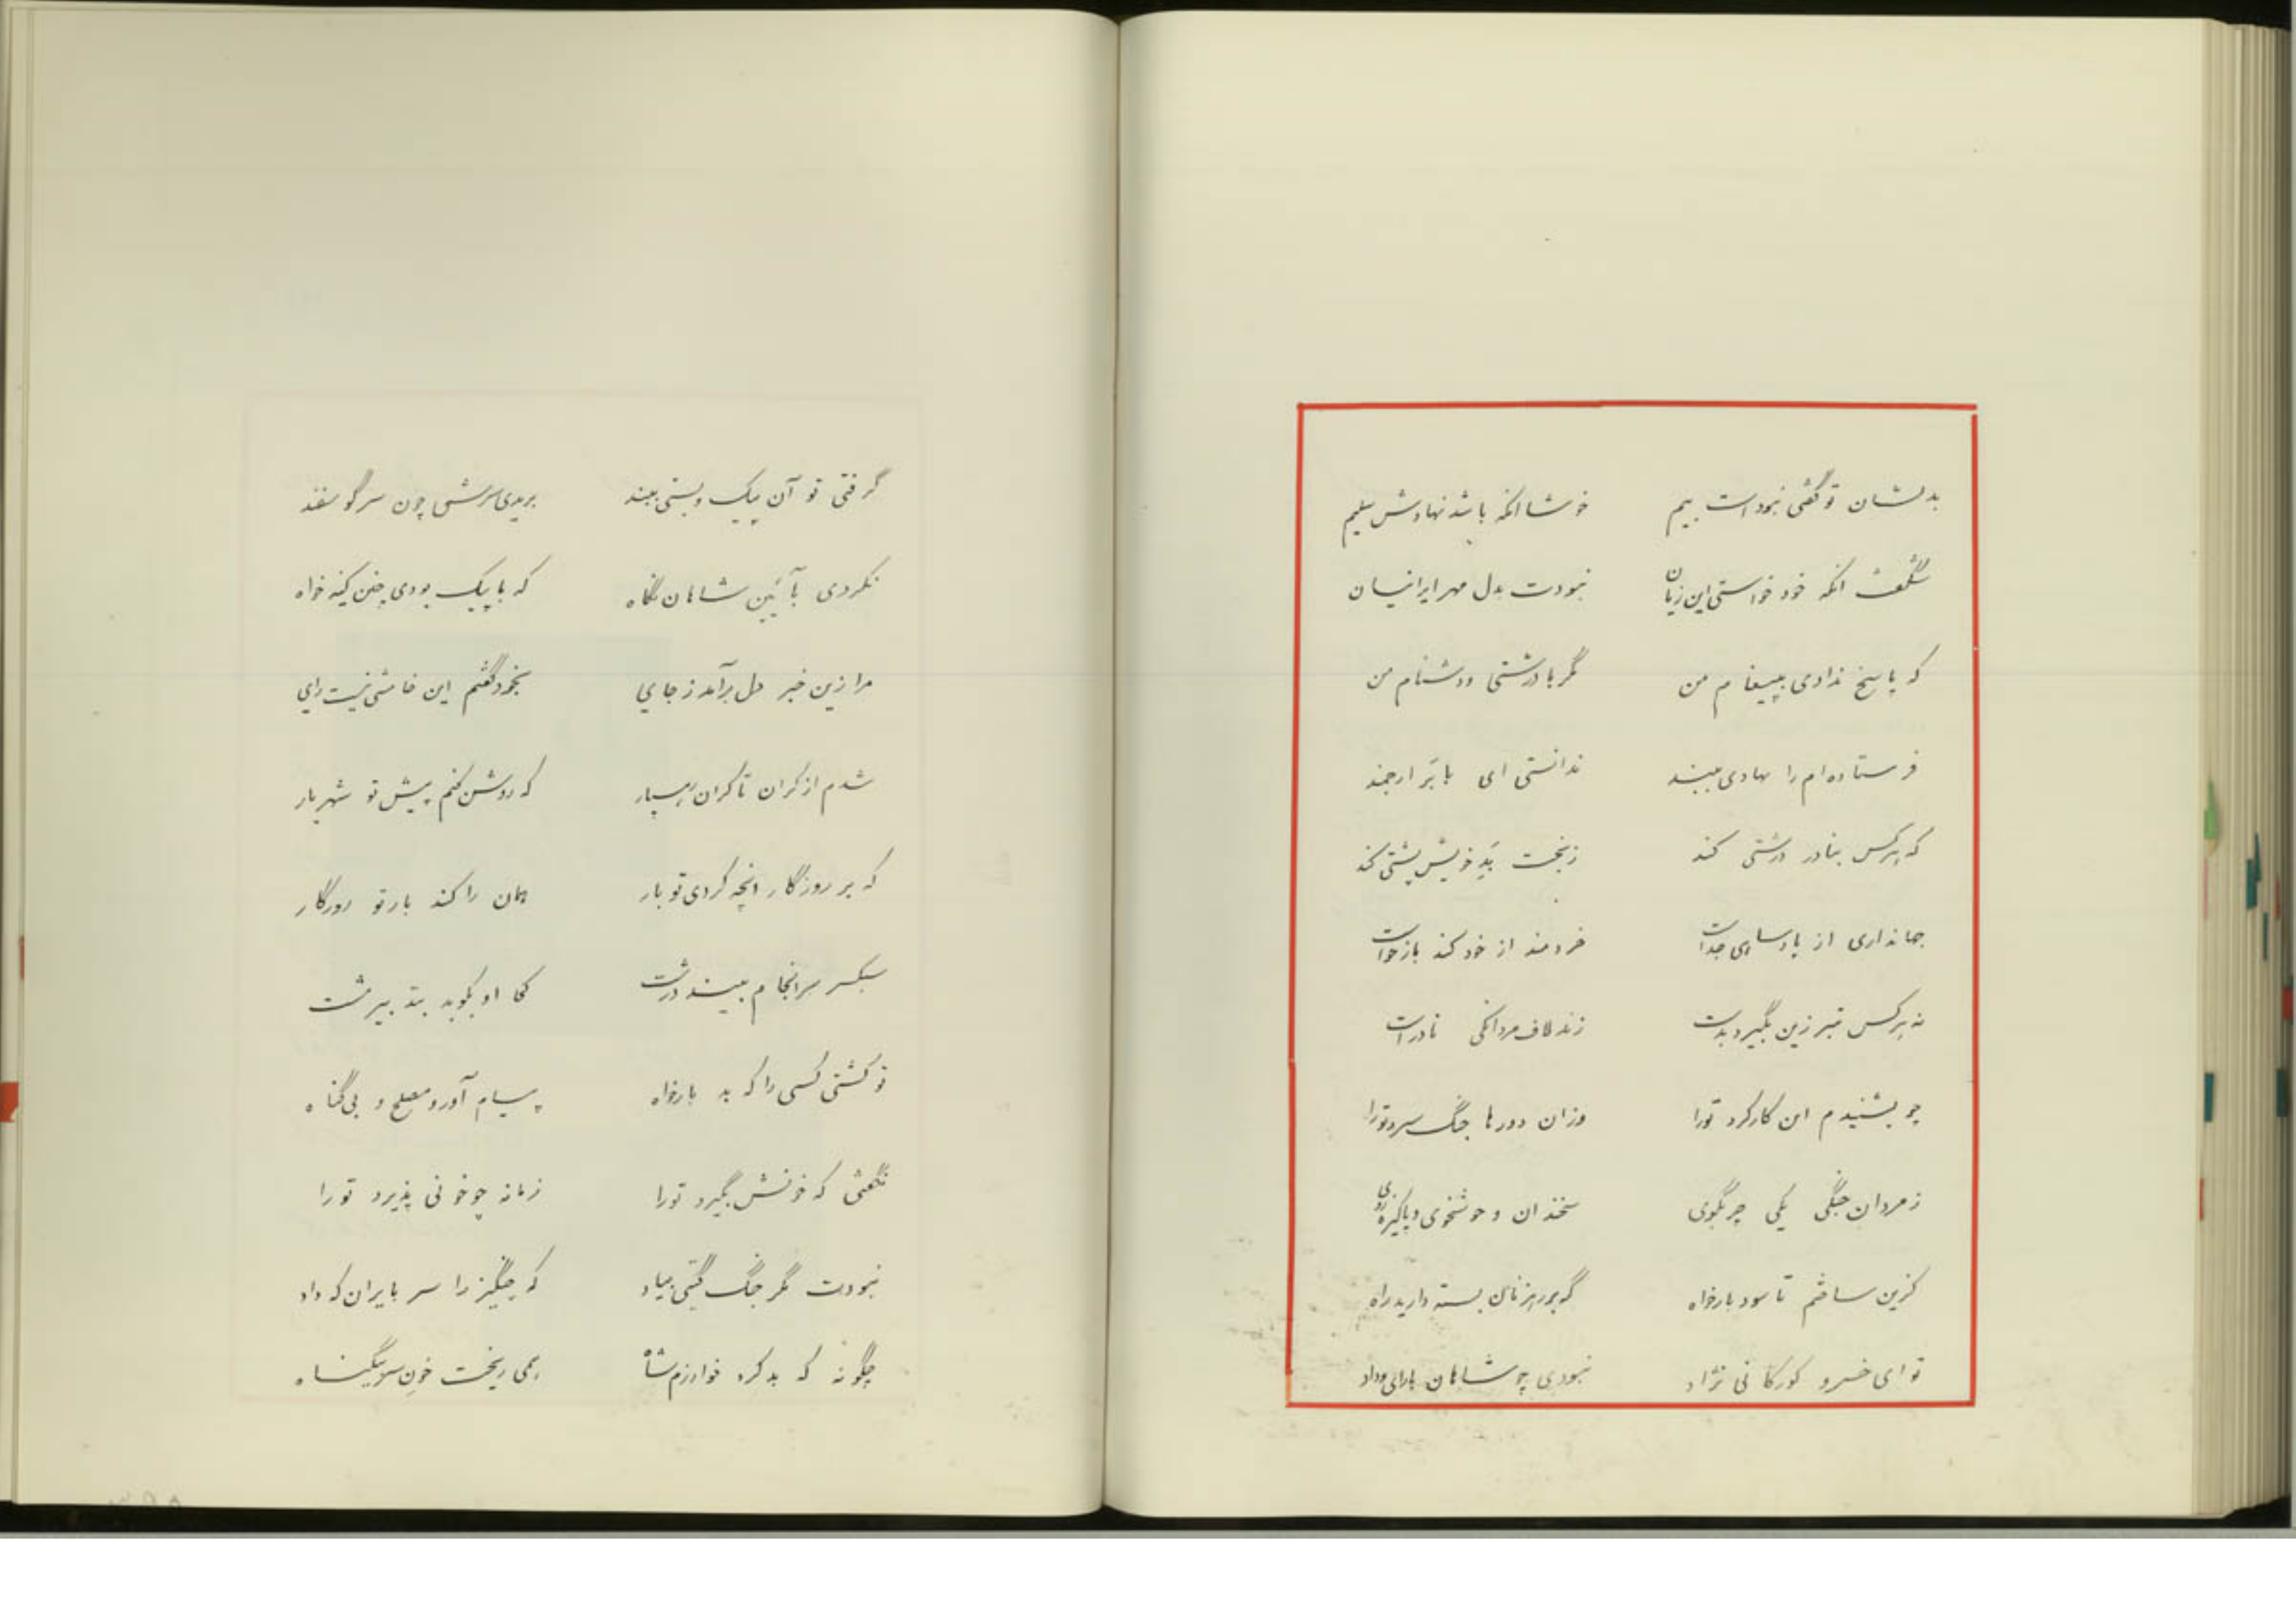 بدلشان تو گفتی نبود است بیم خوشا انکه باشد نهادش سلیم
شگفت انکه خود خواستی این زیان نبودت بدل مهر ایرانیان
که پاسخ ندادی بپیغام من مگر با درشتی و دشنام من
فرستاده‌ام را نهادی ببند ندانستی ای بابَر ارجمند
که هرکس بنادر درشتی کند زبخت بَدِ خویش پشتی کند
جهانداری از پادساهی جداست خردمند از خود کند بازخواست
نه هرکس تبرزین بگیرد بدست زند لاف مردانگی نادر است
چو بشنیدم این کارکرد تورا وزان دورها جنگ سرد تورا
ز مردان جنگی یکی چربگوی سخندان و خوشخوی و پاکیزه روی
گزین ساختم تا سود بارخواه که بر رهزنان بسته دارید راه
تو ای خسرو کورکانی نژاد نبودی چو شاهان بارای و داد
گرفتی تو آن پیک و بستی ببند بریدی سرش چون سر گوسفند
نکردی بآئین شاهان نگاه که با پیک بودی چنین کینه خواه
مرا زین خبر دل برآمد ز جای بخود گفتم این خامشی نیست رای
شدم از کران تا کران رهسپار که روشن کنم پیش تو شهریار
که بر روزگار انچه کردی تو بار همان را کند بار تو روزگار
سبکسر سرانجام بیند درشت کجا او بکوبد بتد بیر مشت
تو کشتی کسی را که بد بارخواه پیام آور و مصلح و بی گناه
نگفتی که خونش بگیرد تورا زمانه چو خونی پذیرد تورا
نبودت مگر جنگ گیتی بیاد که چنگیز را سر بایران که داد
چگونه که بد کرد خوارزمشاه همی ریخت خون سر بیگناه